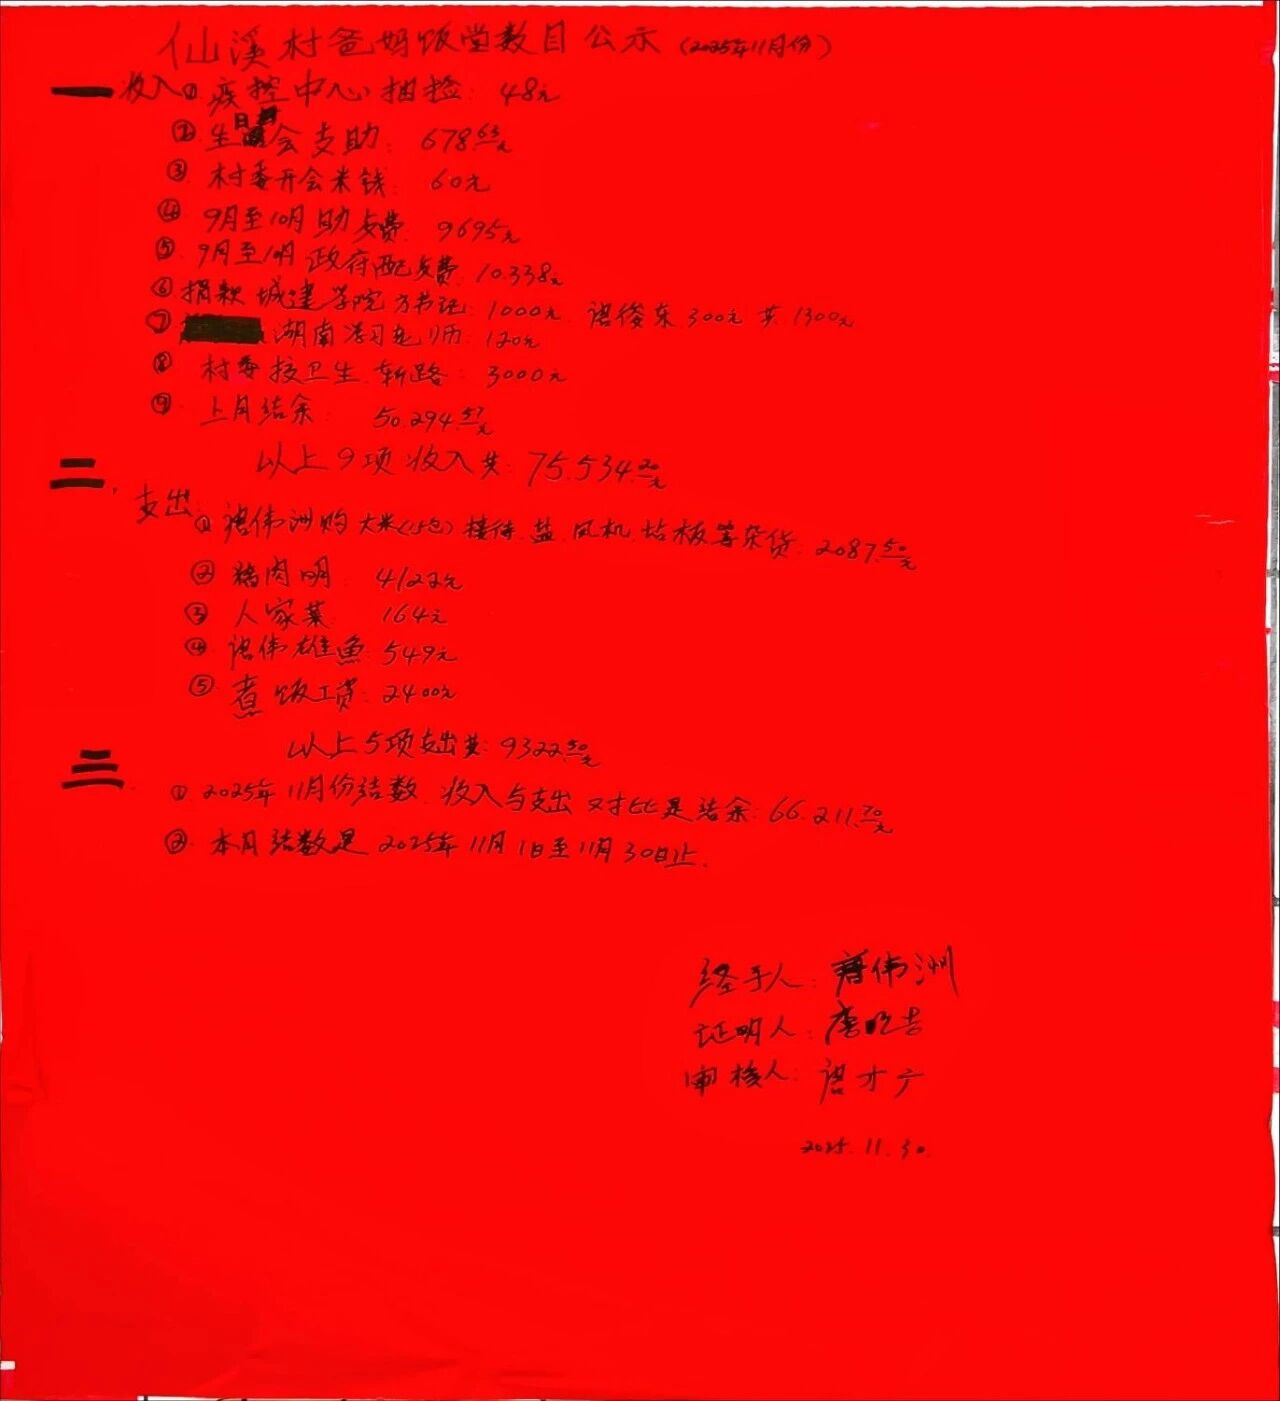 仙溪村爸妈饭堂数目公示(2025年11月份)
一 收入 ① 疾控中心抽检: 48元
② 生日会支助: 678.63元
③ 村委开会米钱: 60元
④ 9月至10月助支费: 9695元
⑤ 9月至10月政府配支费: 10.338元
⑥ 捐款 城建学院方书记: 1000元. 谭俊东 300元 共 1300元
⑦ 湖南学习老师: 120元
⑧ 村委搞卫生 斩路: 3000元
⑨ 上月结余: 50.294.57元
以上9项收入共: 75.534.20元
二. 支出: ① 谭伟洲购大米(15包) 接待. 盐. 风机. 砧板等杂货: 2087.50元
② 猪肉明: 4122元
③ 人家菜: 164元
④ 谭伟雄鱼: 549元
⑤ 煮饭工资: 2400元
以上5项支出共: 9322.50元
三. ① 2025年11月份结数. 收入与支出对比是结余: 66.211.70元
② 本月结数是 2025年11月1日至11月30日止.
经手人: 伟洲
证明人:
审核人: 才
2025.11.30.